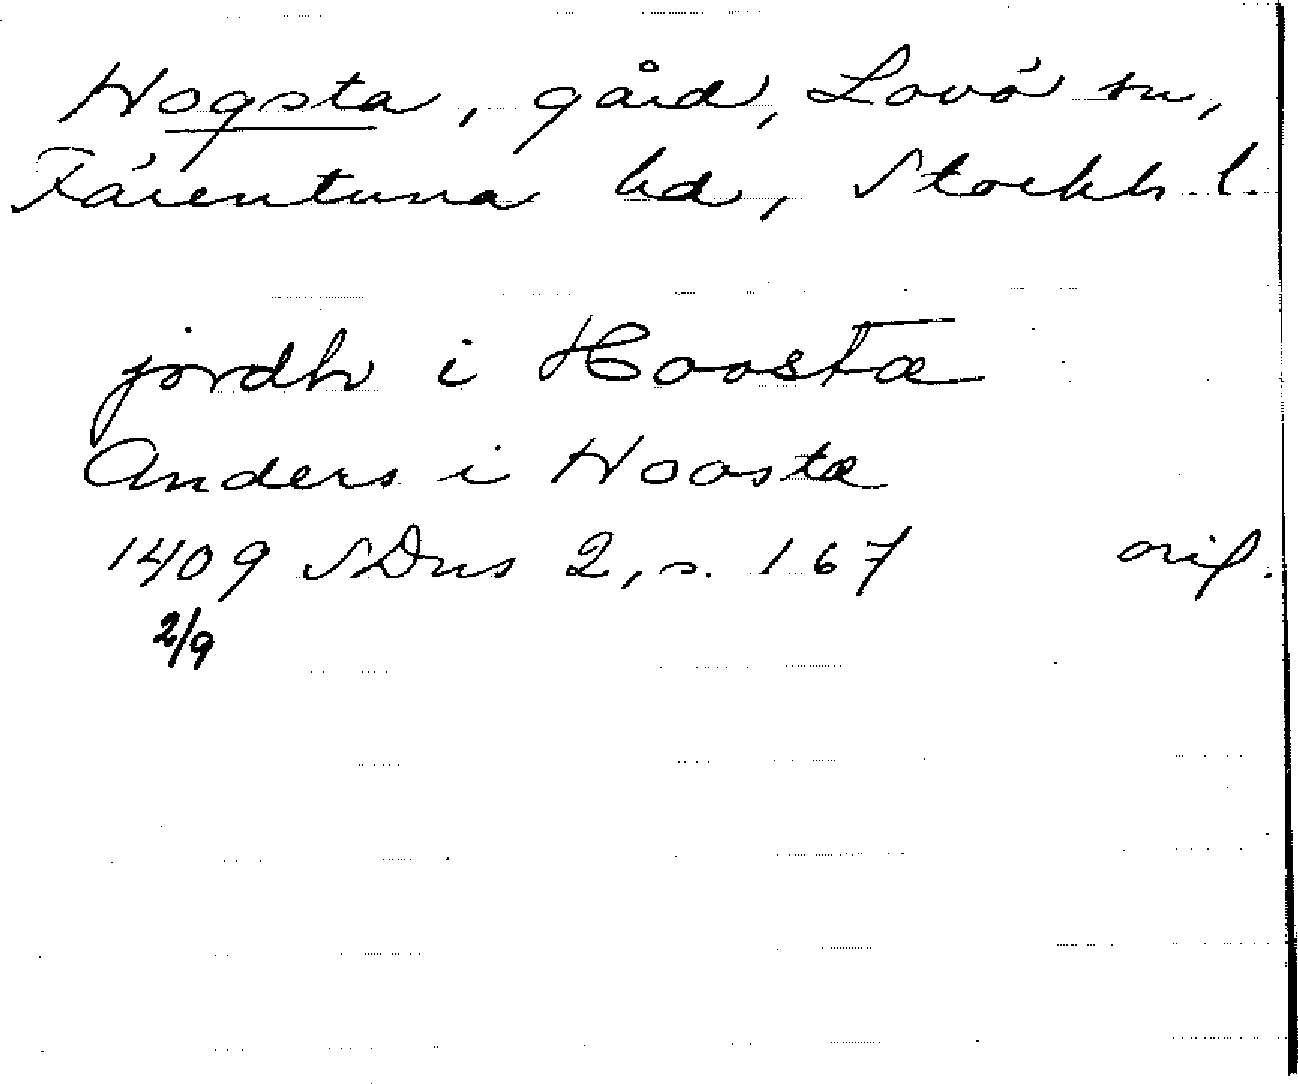 Hogsta, gård, Lovö sn,
Färentuna hd, Stockh. l.
jordh i Hoosta
Anders i Hoosta
1409 SDns 2, s. 167 orig.
2/9